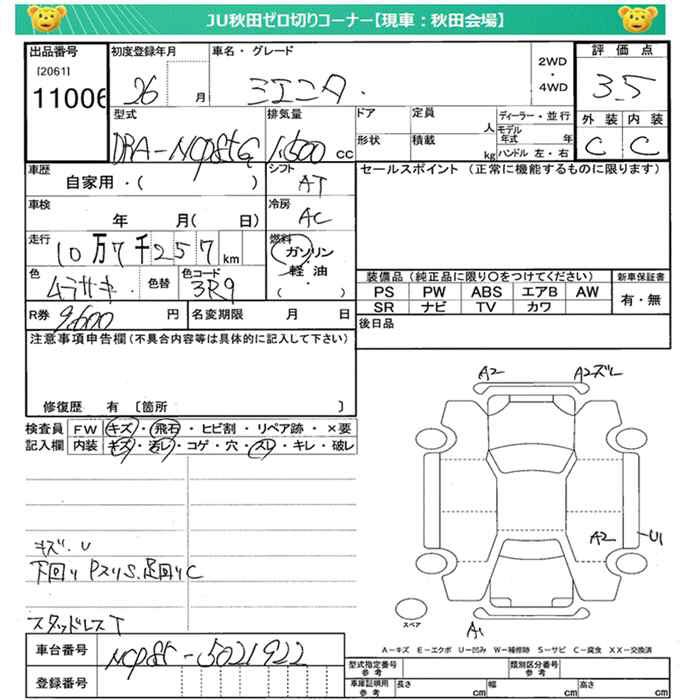 JU秋田ゼロ切りコーナー【現車：秋田会場】
出品番号 初度登録年月 車名・グレード 2WD・4WD 評価点
[2061]
11006 26 月 シエンタ 3.5
型式 排気量 ドア 定員 人 ディーラー・並行 外装 内装
モデル年式 年
DBA-NCP85G 1,500cc 形状 積載 kg ハンドル 左・右 C C
車歴 シフト セールスポイント（正常に機能するものに限ります）
自家用・( ) AT
車検 冷房
年 月( 日) AC
走行 燃料
10万7千257km ガソリン・軽油・( )
色 色替 色コード 装備品（純正品に限り○をつけてください） 新車保証書
ムラサキ 3R9 PS PW ABS エアB AW 有・無
R券 9,600円 名変期限 月 日 SR ナビ TV カワ
注意事項申告欄（不具合内容等は具体的に記入して下さい） 後日品
修復歴 有 〔箇所 〕
A2 A2ズレ
検査員 FW キズ・飛石・ヒビ割・リペア跡・×要
記入欄 内装 キズ・汚レ・コゲ・穴・スレ・キレ・破レ
A2 U1
キズ・U
下回りPスリS.足回りC
スペア
スタッドレスT
A1
A－キズ E－エクボ U－凹み W－補修跡 S－サビ C－腐食 XX－交換済
車台番号 NCP85-5021922
型式指定番号 参考 類別区分番号 参考
登録番号 車庫証明用 参考 長さ cm 幅 cm 高さ cm